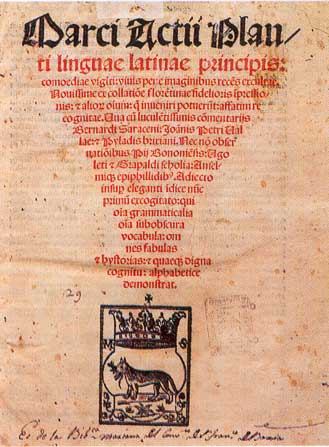 Marci Actii Plau/
ti linguae latinae principis:
comoediae viginti: viuis pene imaginibus recēs excultae.
Nouissime ex collatiōe florētinae fidelioris īpressio-
nis: & alior̄ oīum: q̄ inueniri potuerūt: affatim re
cognitae. Una cū luculētissimis cōmentarijs
Bernardi Saraceni: Joānis Petri Ual
lae: & Pyladis brixiani. Nec nō obser
uatiōibus Pij Bononiēsis: Ugo
leti & Grapaldi scholia: Ansel
miqȝ epiphillidibꝰ. Adiecto
insuꝑ eleganti īdice nūc
primū excogitato: quo
oīa grammaticalia
oīa subobscura
vocabula: om
nes fabulas
& hystorias: & quaeqȝ digna
cognitu: alphabetice
demonstrat.
29
M S
Es de la